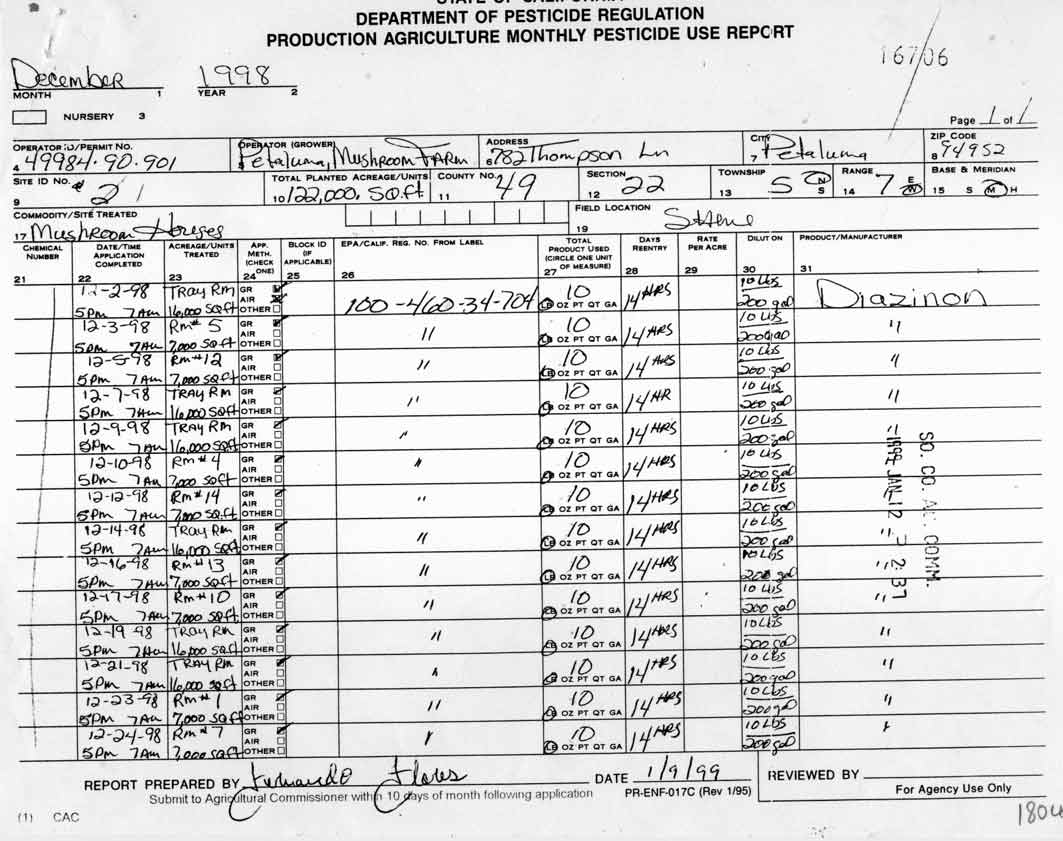 DEPARTMENT OF PESTICIDE REGULATION
PRODUCTION AGRICULTURE MONTHLY PESTICIDE USE REPORT
16706
December 1998
MONTH 1 YEAR 2
NURSERY 3
Page 1 of 1
OPERATOR ID/PERMIT NO. OPERATOR (GROWER) ADDRESS CITY ZIP CODE
4 49984.90.901 5 Petaluma, Mushroom Farm 6 782 Thompson Ln 7 Petaluma 8 94952
SITE ID NO. TOTAL PLANTED ACREAGE/UNITS COUNTY NO. SECTION TOWNSHIP N S RANGE E W BASE & MERIDIAN
9 21 10 122,000, SQ.ft 11 49 12 22 13 5 14 7 15 S M H
COMMODITY/SITE TREATED FIELD LOCATION
17 Mushroom Houses 19 Same
CHEMICAL NUMBER DATE/TIME APPLICATION COMPLETED ACREAGE/UNITS TREATED APP. METH. (CHECK ONE) BLOCK ID (IF APPLICABLE) EPA/CALIF. REG. NO. FROM LABEL TOTAL PRODUCT USED (CIRCLE ONE UNIT OF MEASURE) DAYS REENTRY RATE PER ACRE DILUTION PRODUCT/MANUFACTURER
21 22 23 24 25 26 27 28 29 30 31
12-2-98 TRAY RM GR AIR 100-460-34-704 10 14 HRS 10 Lbs Diazinon
5PM 7AM 16,000 SQft OTHER LB OZ PT QT GA 200 gal
12-3-98 Rm# 5 GR AIR " 10 14 HRS 10 Lbs "
5PM 7AM 7,000 SQ ft OTHER LB OZ PT QT GA 200 gal
12-5-98 Rm #12 GR AIR " 10 14 HRS 10 Lbs "
5PM 7AM 7,000 SQ ft OTHER LB OZ PT QT GA 200 gal
12-7-98 TRAY RM GR AIR " 10 14 HR 10 Lbs "
5PM 7AM 16,000 SQft OTHER LB OZ PT QT GA 200 gal
12-9-98 TRAY RM GR AIR " 10 14 HRS 10 Lbs "
5PM 7AM 16,000 SQft OTHER LB OZ PT QT GA 200 gal
12-10-98 Rm # 4 GR AIR " 10 14 HRS 10 Lbs
5PM 7AM 7,000 SQft OTHER LB OZ PT QT GA 200 gal
12-12-98 Rm# 14 GR AIR " 10 14 HRS 10 Lbs
5PM 7AM 7,000 SQ.ft OTHER LB OZ PT QT GA 200 gal
12-14-98 TRAY RM GR AIR " 10 14 HRS 10 Lbs "
5PM 7AM 16,000 SQft OTHER LB OZ PT QT GA 200 gal
12-16-98 Rm # 13 GR AIR " 10 14 HRS 10 Lbs "
5PM 7AM 7,000 SQft OTHER LB OZ PT QT GA 200 gal
12-17-98 Rm # 10 GR AIR " 10 14 HRS 10 Lbs "
5PM 7AM 7,000 SQft OTHER LB OZ PT QT GA 200 gal
12-19 98 TRAY RM GR AIR " 10 14 HRS 10 Lbs "
5PM 7AM 16,000 SQft OTHER LB OZ PT QT GA 200 gal
12-21-98 TRAY RM GR AIR " 10 14 HRS 10 Lbs "
5PM 7AM 16,000 SQft OTHER LB OZ PT QT GA 200 gal
12-23-98 Rm # 1 GR AIR " 10 14 HRS 10 Lbs "
5PM 7AM 7,000 SQ ff OTHER LB OZ PT QT GA 200 gal
12-24-98 Rm # 7 GR AIR " 10 14 HRS 10 Lbs "
5PM 7AM 7,000 SQft OTHER LB OZ PT QT GA 200 gal
SO. CO. AG. COMM.
1999 JAN 12 2:37
REPORT PREPARED BY Fernando Flores DATE 1/9/99 REVIEWED BY
Submit to Agricultural Commissioner within 10 days of month following application PR-ENF-017C (Rev 1/95) For Agency Use Only
(1) CAC